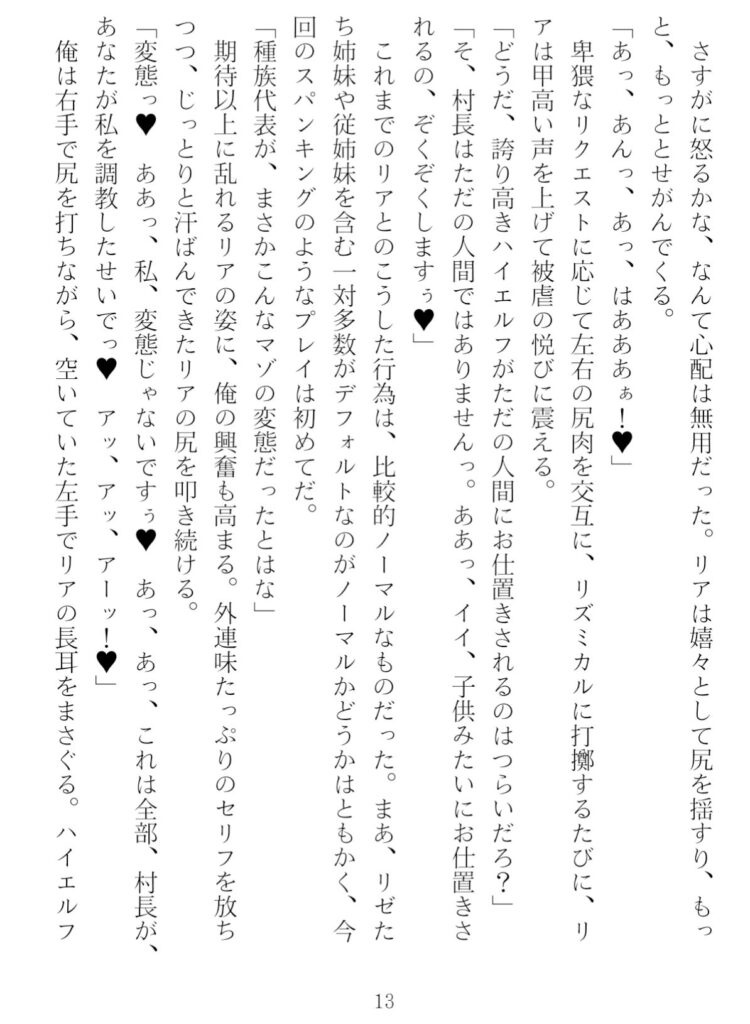 さすがに怒るかな、なんて心配は無用だった。リアは嬉々として尻を揺すり、もっ
と、もっととせがんでくる。
「あっ、あんっ、あっ、はあああぁ！♥」
　卑猥なリクエストに応じて左右の尻肉を交互に、リズミカルに打擲するたびに、リ
アは甲高い声を上げて被虐の悦びに震える。
「どうだ、誇り高きハイエルフがただの人間にお仕置きされるのはつらいだろ？」
「そ、村長はただの人間ではありませんっ。ああっ、イイ、子供みたいにお仕置きさ
れるの、ぞくぞくしますぅ♥」
　これまでのリアとのこうした行為は、比較的ノーマルなものだった。まあ、リゼた
ち姉妹や従姉妹を含む一対多数がデフォルトなのがノーマルかどうかはともかく、今
回のスパンキングのようなプレイは初めてだ。
「種族代表が、まさかこんなマゾの変態だったとはな」
　期待以上に乱れるリアの姿に、俺の興奮も高まる。外連味たっぷりのセリフを放ち
つつ、じっとりと汗ばんできたリアの尻を叩き続ける。
「変態っ♥　ああっ、私、変態じゃないですぅ♥　あっ、あっ、これは全部、村長が、
あなたが私を調教したせいでっ♥　アッ、アッ、アーッ！♥」
　俺は右手で尻を打ちながら、空いていた左手でリアの長耳をまさぐる。ハイエルフ
13